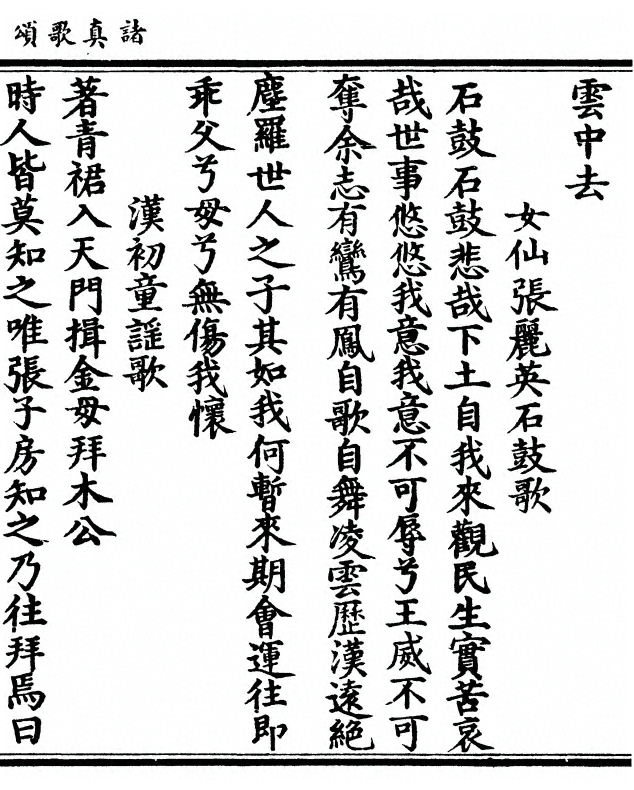 諸真歌頌
雲中去
女仙張麗英石鼓歌
石鼓石鼓悲哉下土自我來觀民生實苦哀
哉世事悠悠我意我意不可辱兮王威不可
奪余志有鸞有鳳自歌自舞凌雲歷漢遠絕
塵羅世人之子其如我何暫來期會運往即
乖父兮母兮無傷我懷
漢初童謡歌
著青裙入天門揖金母拜木公
時人皆莫知之唯張子房知之乃往拜焉曰